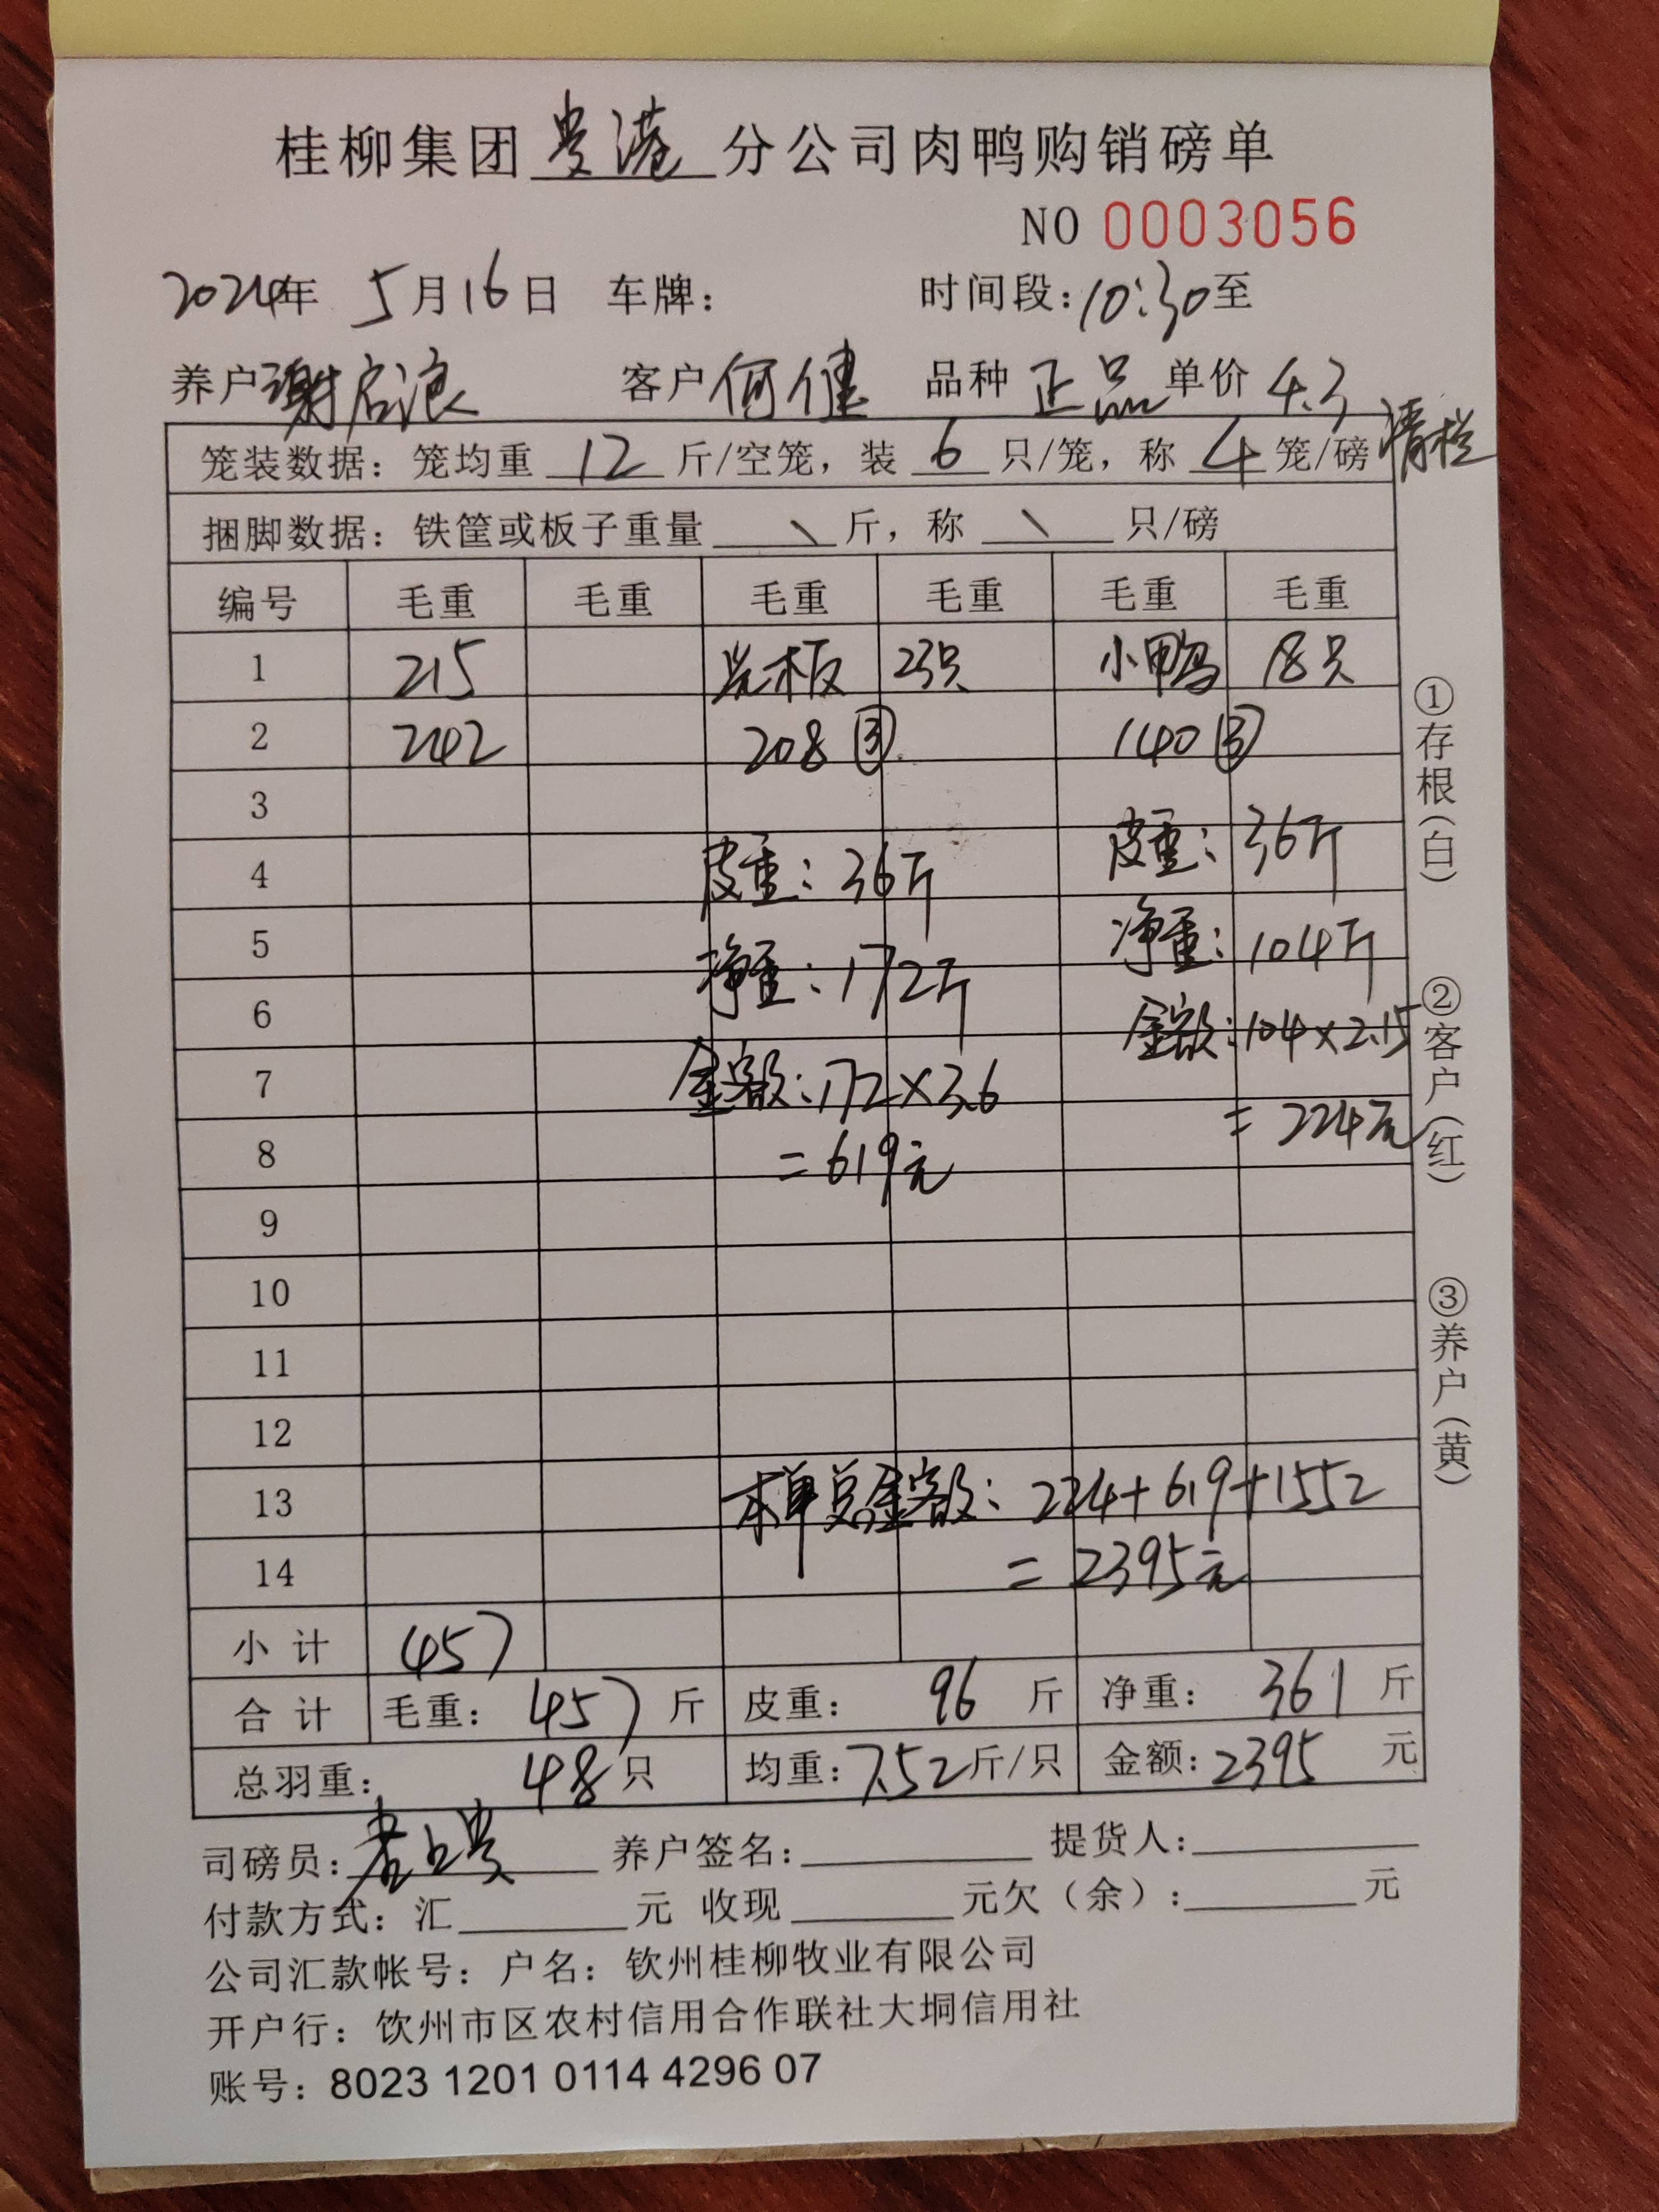 桂柳集团贵港分公司肉鸭购销磅单
NO 0003056
2024年 5月16日 车牌： 时间段：10:30至
养户谢启浪 客户何健 品种正品 单价4.3 清栏
笼装数据：笼均重 12 斤/空笼，装 6 只/笼，称 4 笼/磅
捆脚数据：铁筐或板子重量 \ 斤，称 \ 只/磅
编号 毛重 毛重 毛重 毛重 毛重 毛重
1 215 光板 23只 小鸭 18只
2 242 208③ 140③
3
4 皮重：36斤 皮重：36斤
5 净重：172斤 净重：104斤
6 金额：104×2.15
7 金额：172×3.6 =224元
8 =619元
9
10
11
12
13 本单总金额：224+619+1552
14 =2395元
小计 457
合计 毛重：457斤 皮重：96斤 净重：361斤
总羽重：48只 均重：7.52斤/只 金额：2395元
司磅员： 养户签名： 提货人：
付款方式：汇 元 收现 元欠（余）： 元
公司汇款帐号：户名：钦州桂柳牧业有限公司
开户行：钦州市区农村信用合作联社大垌信用社
账号：8023 1201 0114 4296 07
①存根（白）
②客户（红）
③养户（黄）